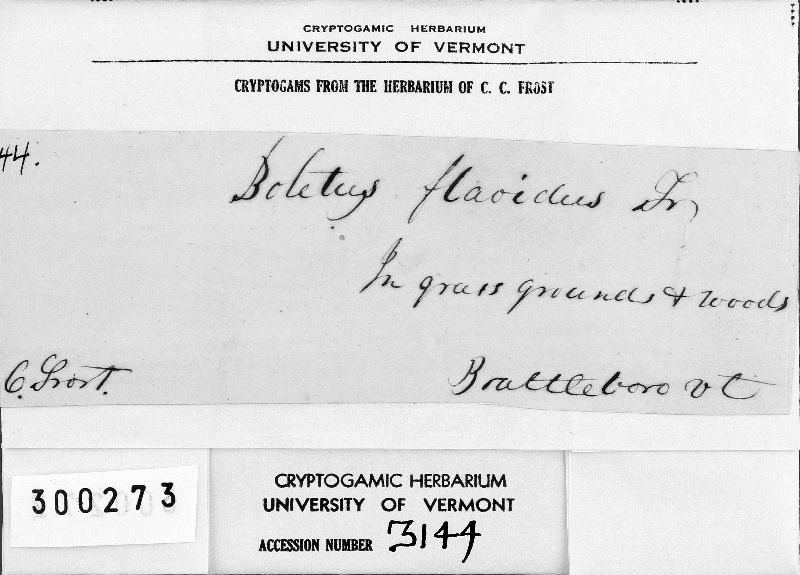 CRYPTOGAMIC HERBARIUM
UNIVERSITY OF VERMONT
CRYPTOGAMS FROM THE HERBARIUM OF C. C. FROST
44.
Boletus flavidus Fr
In grass grounds & woods
C. Frost.
Brattleboro vt
300273
CRYPTOGAMIC HERBARIUM
UNIVERSITY OF VERMONT
ACCESSION NUMBER 3144